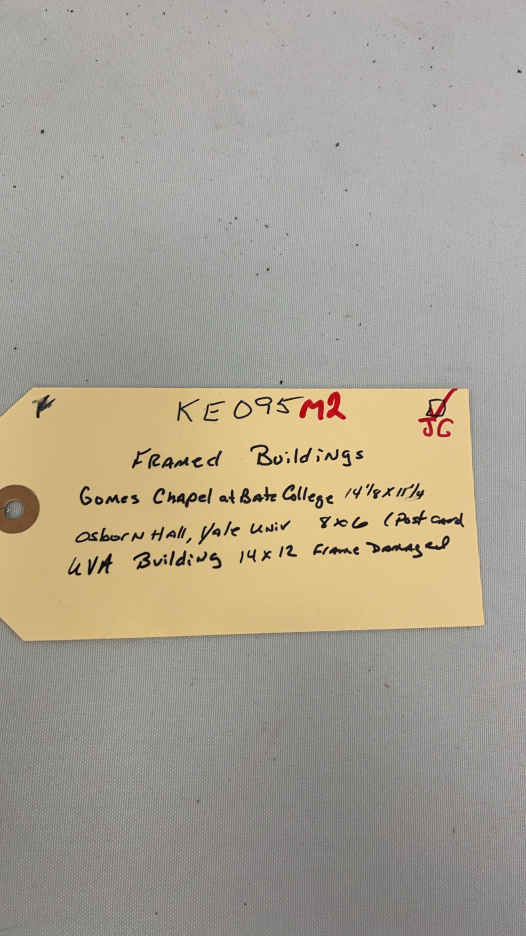 KE095 M2
JG
FRAMED BUILDINGS
Gomes Chapel at Bate College 14 1/8 X 11 1/4
Osborn Hall, Yale Univ 8x6 (Post Card
UVA Building 14 x 12 Frame Damaged